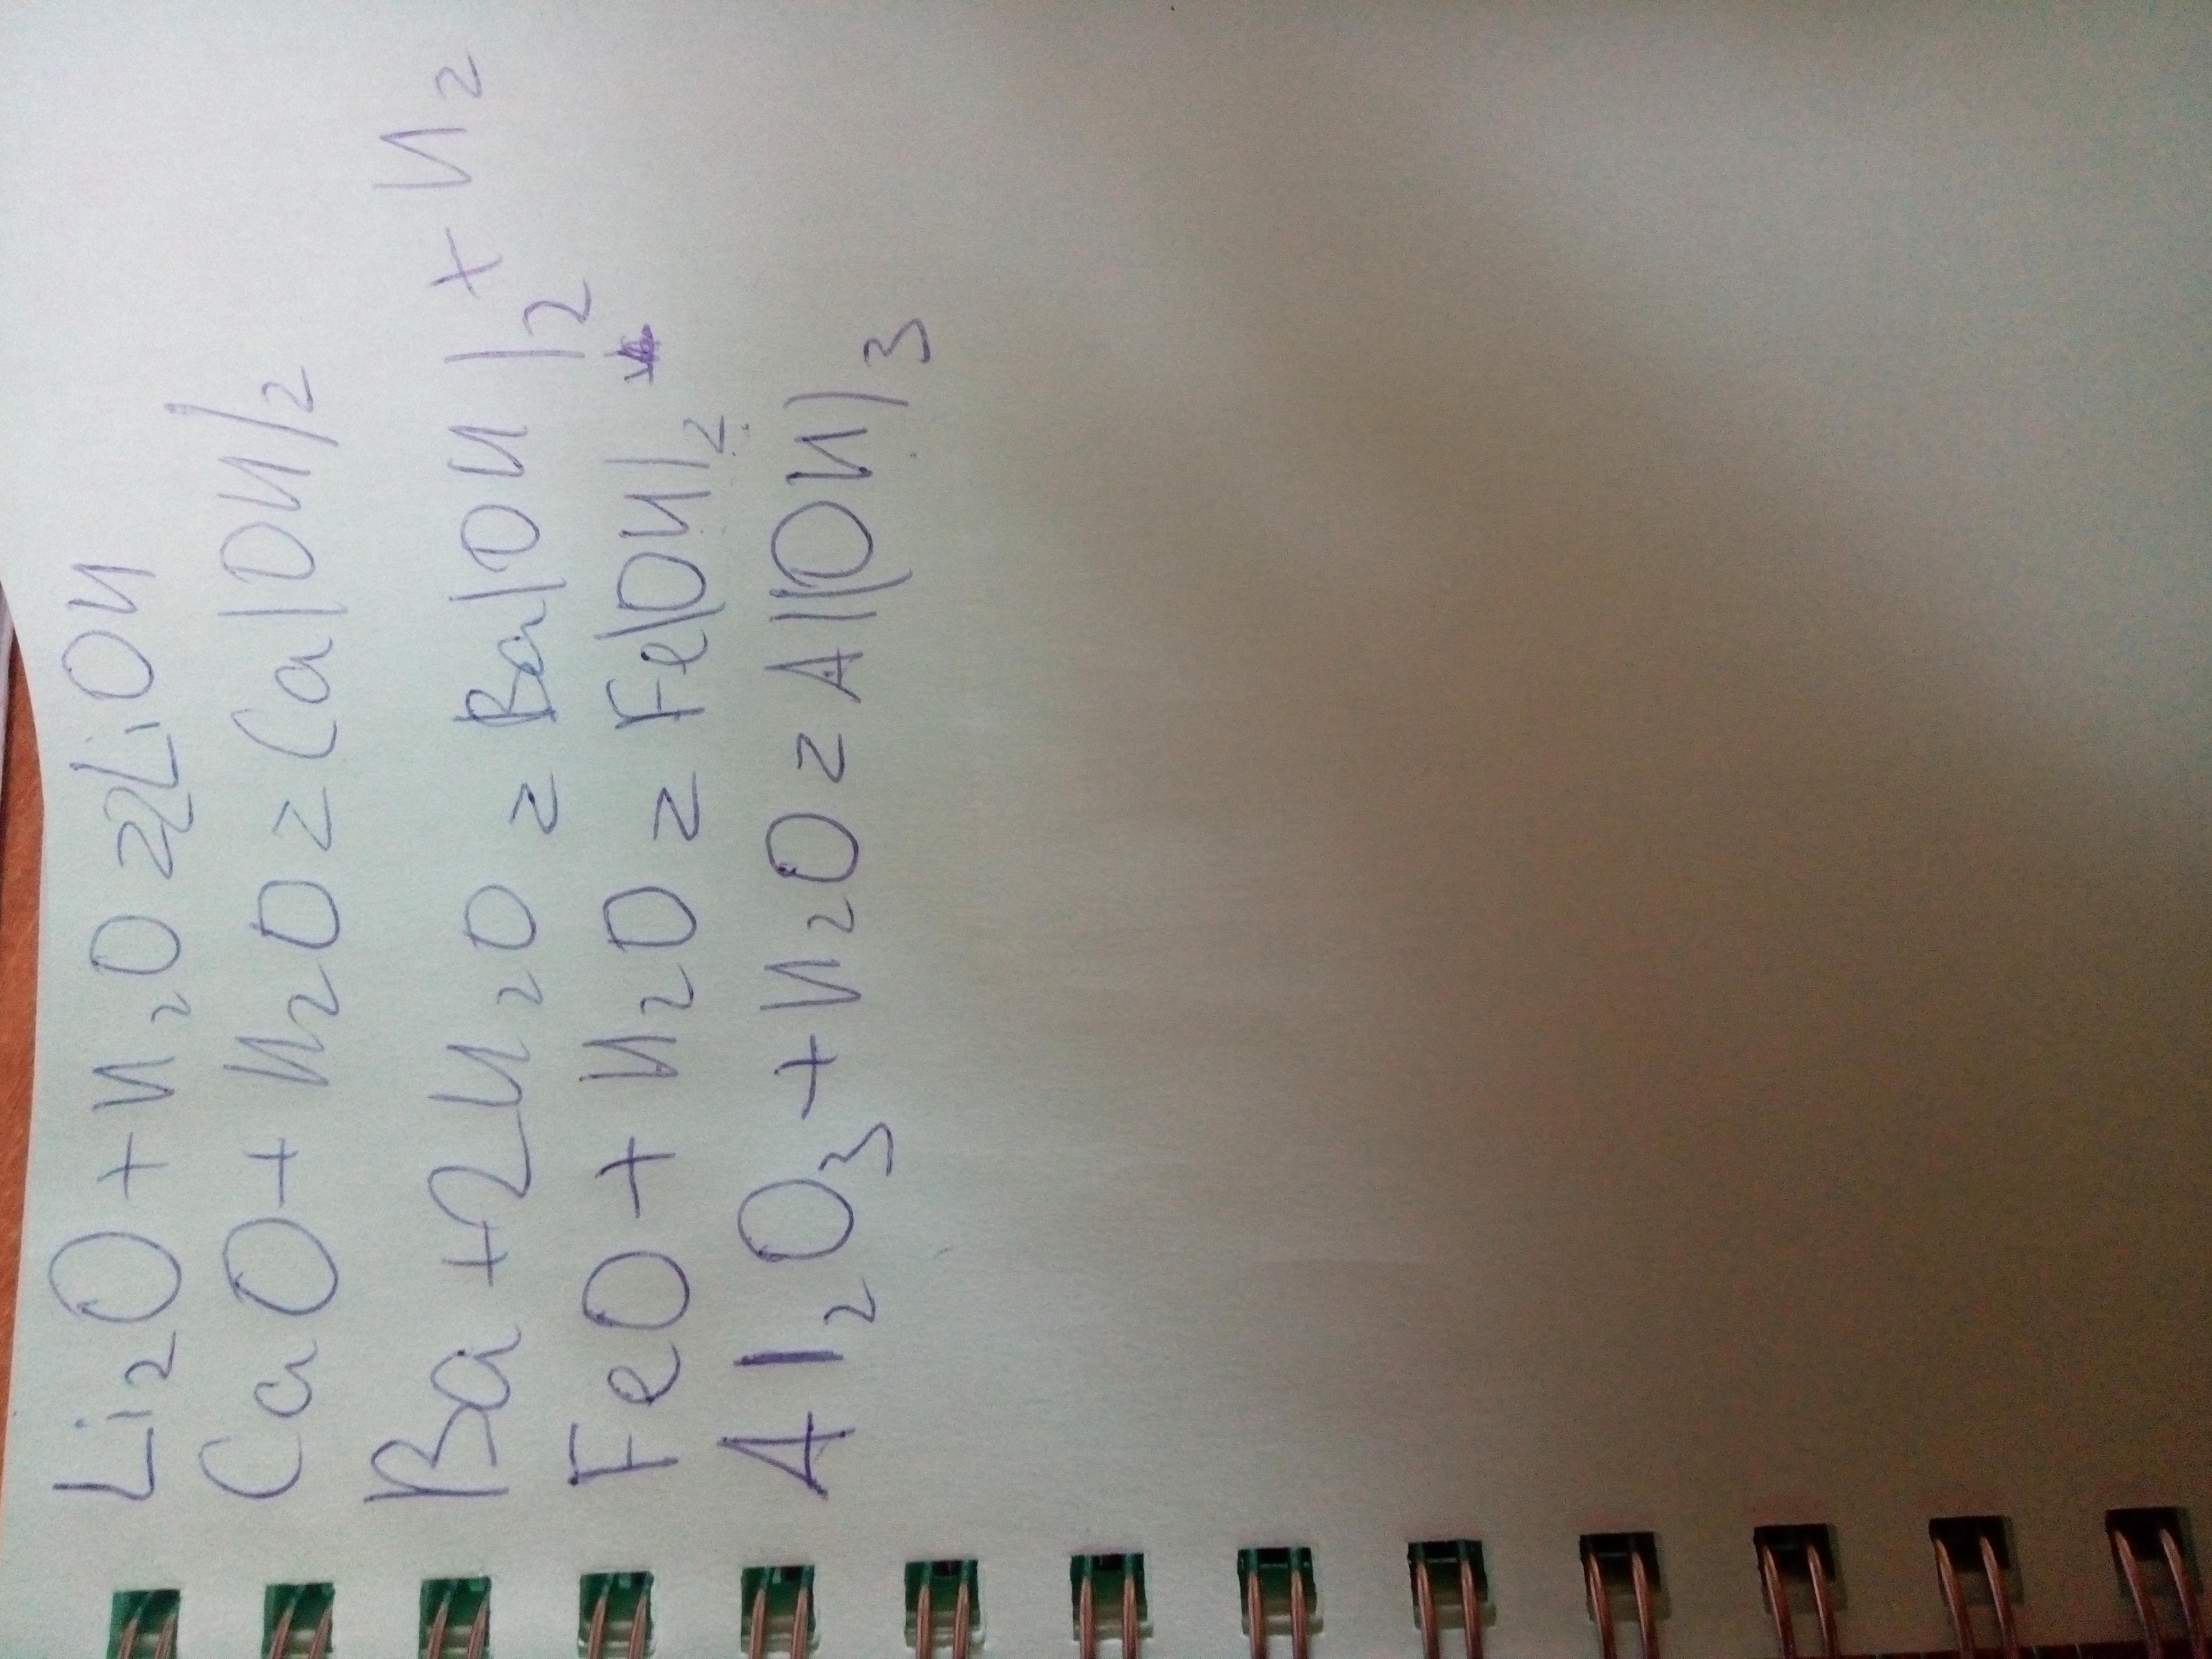 Li₂O + H₂O = 2LiOH
CaO + H₂O = Ca(OH)₂
Ba + 2H₂O = Ba(OH)₂ + H₂
FeO + H₂O = Fe(OH)₂
Al₂O₃ + H₂O = Al(OH)₃